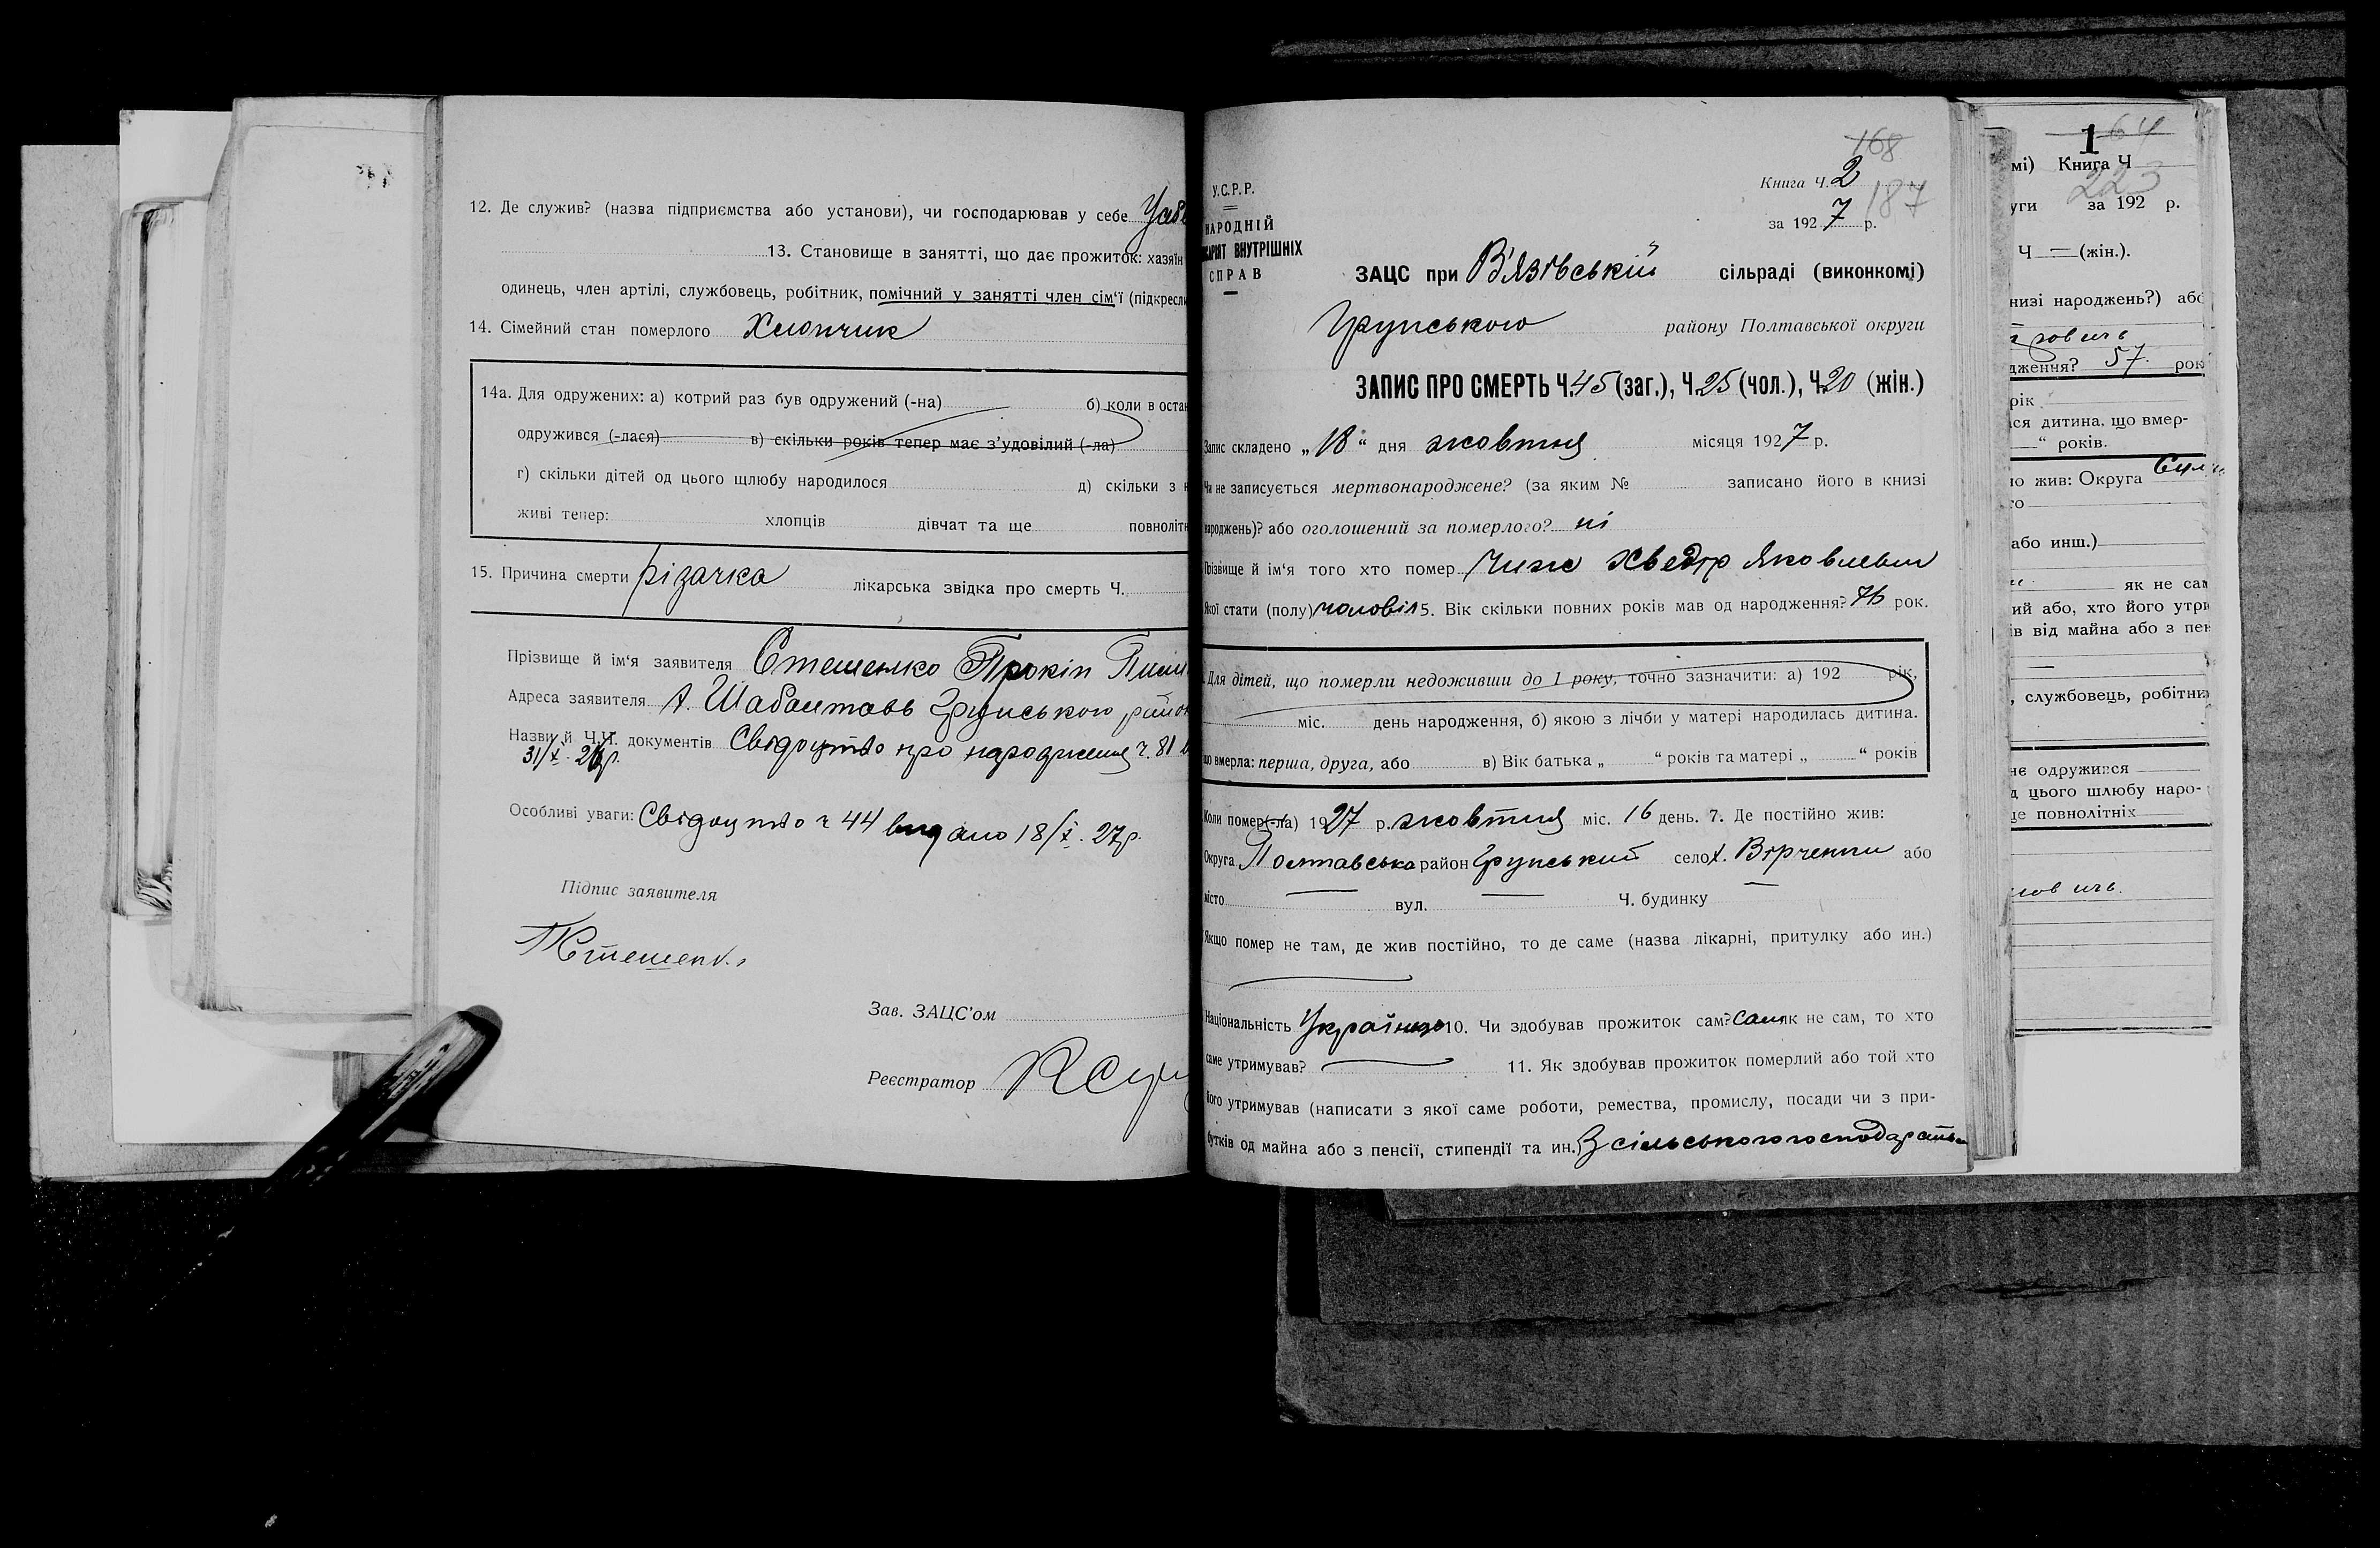 12. Де служив? (назва підприємства або установи), чи господарював у себе
13. Становище в занятті, що дає прожиток: хазяїн
одинець, член артілі, службовець, робітник, помічний у занятті член сім'ї (підкресли
14. Сімейний стан померлого Хлопчик
14а. Для одружених: а) котрий раз був одружений (-на) б) коли в остан
одружився (-лася) в) скільки років тепер має з'удовілий (-ла)
г) скільки дітей од цього щлюбу народилося д) скільки з н
живі тепер: хлопців дівчат та ще повноліт
15. Причина смерти різачка лікарська звідка про смерть Ч.
Прізвище й ім'я заявителя Стешенко Прокіп
Адреса заявителя х. Шабаltавь Грунського район
Назви й Ч.Ч. документів Свідоцтво про народження ч. 81
31/X. 26р.
Особливі уваги: Свідоцтво ч 44 видано 18/X. 27р.
Підпис заявителя
ПСтешенко
Зав. ЗАЦС'ом
Реєстратор
168
Книга Ч. 2
187
за 1927 р.
У.С.Р.Р.
НАРОДНІЙ
САРІЯТ ВНУТРІШНІХ
СПРАВ
ЗАЦС при В'язівській сільраді (виконкомі)
Грунського району Полтавської округи
ЗАПИС ПРО СМЕРТЬ Ч.45 (заг.), Ч.25 (чол.), Ч.20 (жін.)
Запис складено „18" дня жовтня місяця 1927 р.
Чи не записується мертвонароджене? (за яким № записано його в книзі
народжень)? або оголошений за померлого? ні
Прізвище й ім'я того хто помер Чиж Хведір Яковлевич
Якої стати (полу) чоловіч 5. Вік скільки повних років мав од народження? 76 рок.
Для дітей, що померли недоживши до 1 року, точно зазначити: а) 192 рік,
міс. день народження, б) якою з лічби у матері народилась дитина.
що вмерла: перша, друга, або в) Вік батька „ " років та матері „ " років
Коли помер(-ла) 1927 р. жовтня міс. 16 день. 7. Де постійно жив:
Округа Полтавська район Грунський село х. Вірченки або
місто вул. Ч. будинку
Якщо помер не там, де жив постійно, то де саме (назва лікарні, притулку або ин.)
Національність Українець 10. Чи здобував прожиток сам? Сам як не сам, то хто
саме утримував? 11. Як здобував прожиток померлий або той хто
його утримував (написати з якої саме роботи, ремества, промислу, посади чи з при-
бутків од майна або з пенсії, стипендії та ин.) З сільського господарства
1 64
мі) Книга Ч
223
уги за 192 р.
Ч — (жін.).
низі народжень?) або
дження? 57 рок
рік
ся дитина, що вмер-
" років.
о жив: Округа
го
або инш.)
як не сам
ий або, хто його утри
ів від майна або з пен
, службовець, робітник
нє одружився
д цього шлюбу наро-
ще повнолітніх